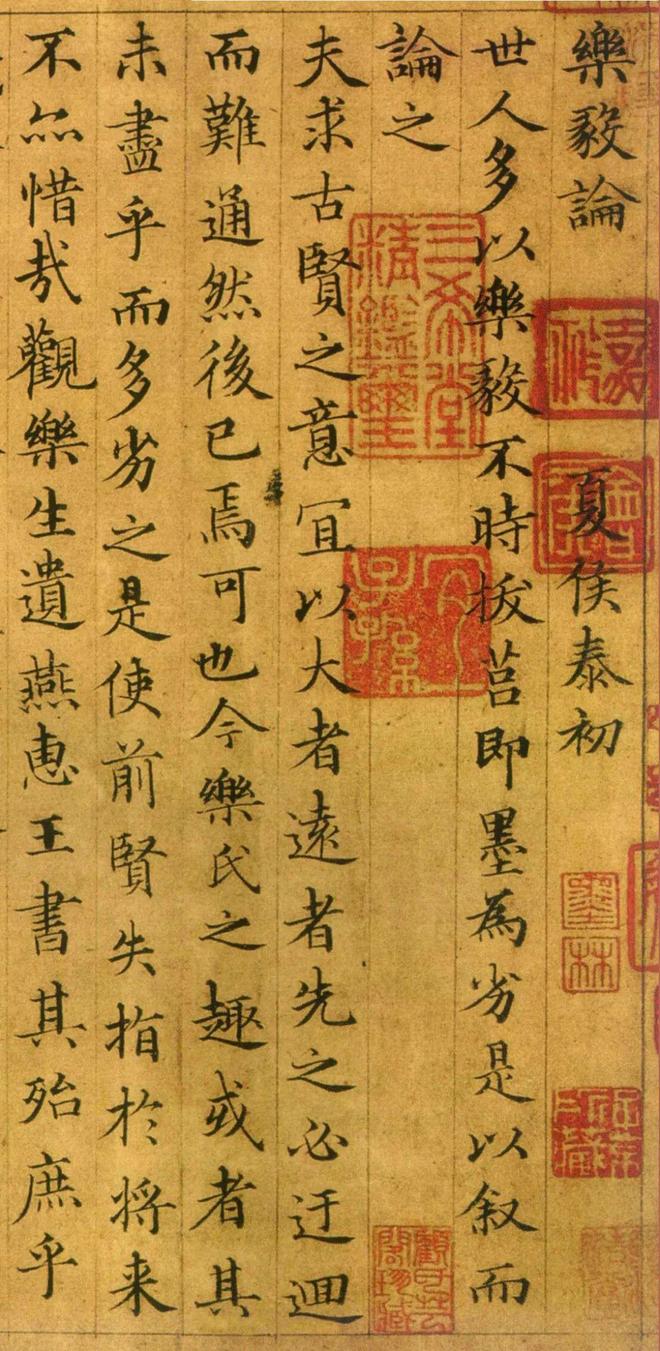 樂毅論 夏侯泰初
世人多以樂毅不時拔莒即墨為劣是以叙而
論之
夫求古賢之意宜以大者遠者先之必迂迴
而難通然後已焉可也今樂氏之趣或者其
未盡乎而多劣之是使前賢失指於将来
不亦惜哉觀樂生遺燕惠王書其殆庶乎
三希堂
精鑑璽
宜
子孫
墨林